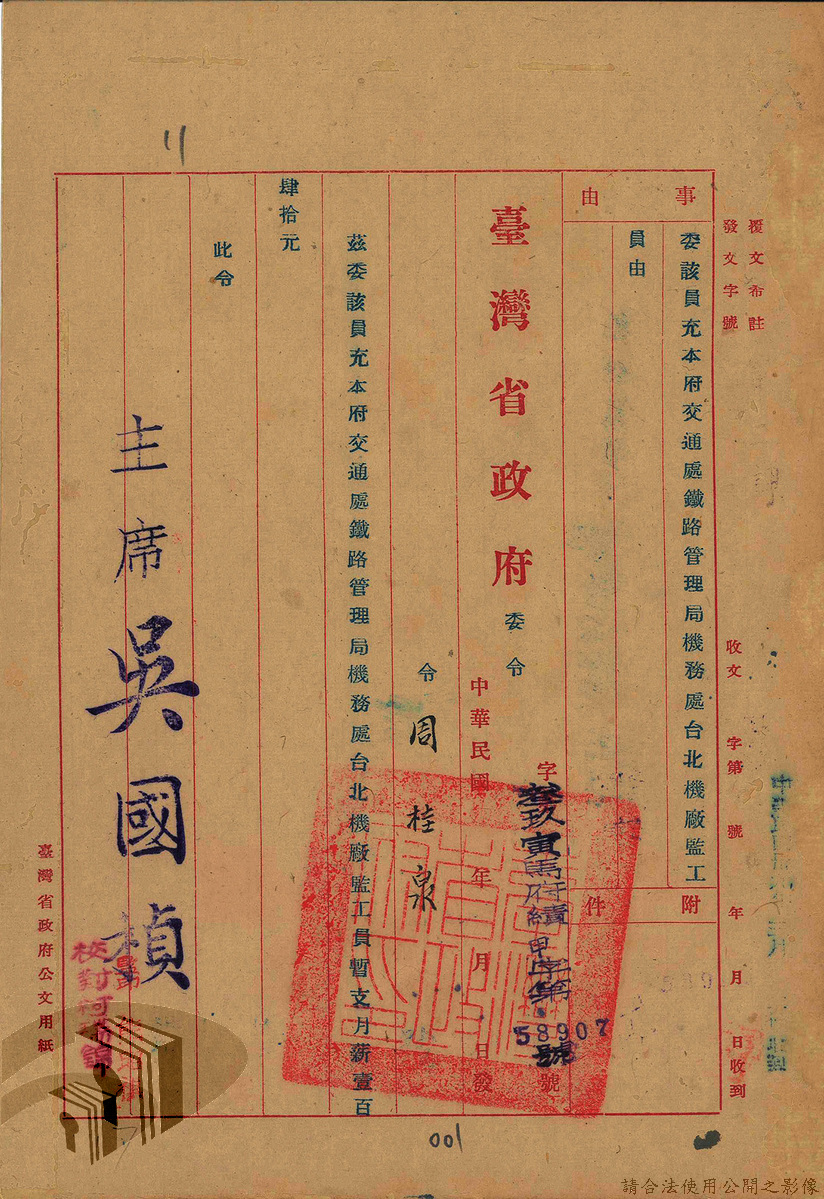 覆文希註
發文字號
收文 字第 號 年 月 日收到
事由
委該員充本府交通處鐵路管理局機務處台北機廠監工
員由
附件
臺灣省政府委令
字
叁玖寅馬府績甲字第
58907
號
號
中華民國 年 月 日發
令 周桂泉
茲委該員充本府交通處鐵路管理局機務處台北機廠監工員暫支月薪壹百
肆拾元
此令
主席吳國楨
校對
臺灣省政府公文用紙
001
請合法使用公開之影像